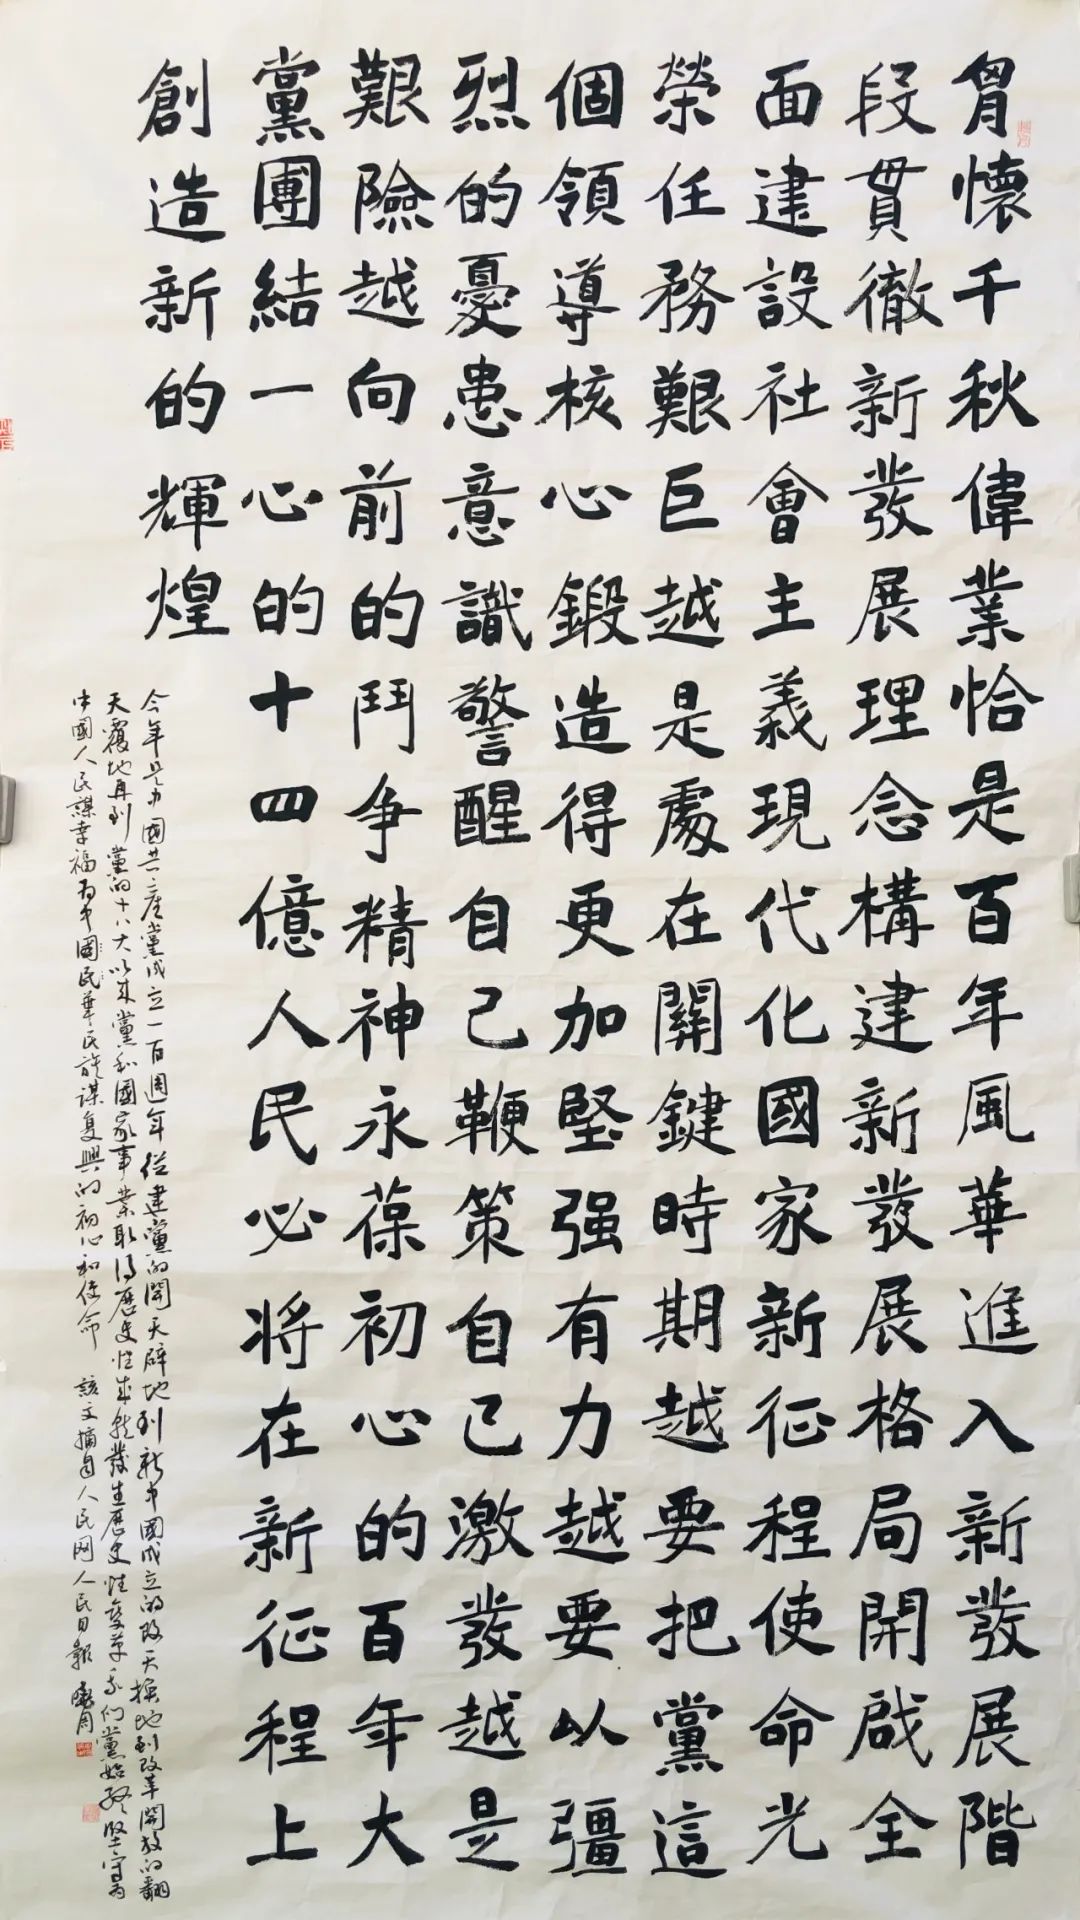 胷懷千秋偉業恰是百年風華進入新發展階
段貫徹新發展理念構建新發展格局開啟全
面建設社會主義現代化國家新征程使命光
榮任務艱巨越是處在關鍵時期越要把黨這
個領導核心鍛造得更加堅强有力越要以彊
烈的憂患意識警醒自己鞭策自已激發越是
艱險越向前的鬥争精神永葆初心的百年大
黨團結一心的十四億人民必将在新征程上
創造新的輝煌
今年是中國共產黨成立一百週年從建黨的開天辟地到新中國成立的改天換地到改革開放的翻
天覆地再到黨的十八大以来黨和國家事業取得歷史性成就發生歷史性變革我们黨始終堅守為
中國人民謀幸福為中國民華民族謀复興的初心和使命 該文摘自人民网人民日報